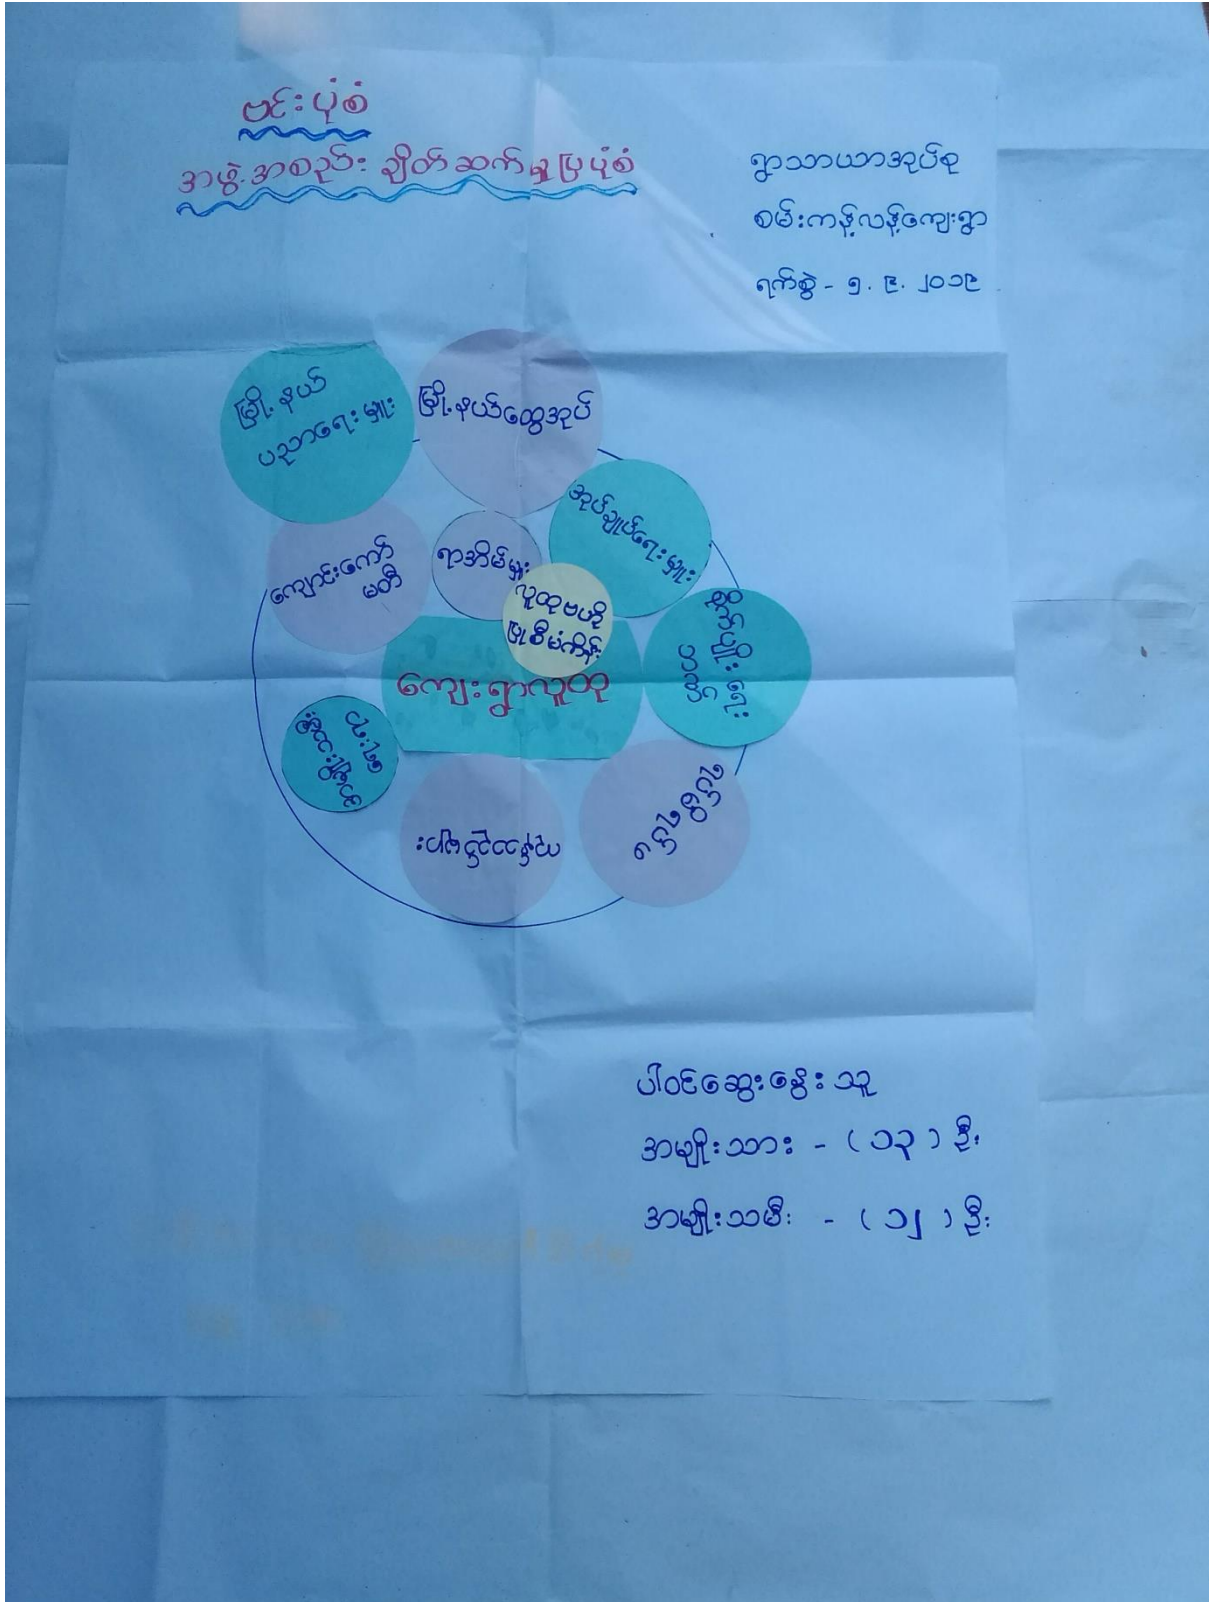 ဗင်းပုံစံ
အဖွဲ့အစည်း ချိတ်ဆက်မှုပြပုံစံ
ရွာသာယာအုပ်စု
စမ်းကန့်လန့်ကျေးရွာ
ရက်စွဲ - ၅. ၉. ၂၀၁၉
မြို့နယ်
ပညာရေးမှူး
မြို့နယ်ထွေအုပ်
အုပ်ချုပ်ရေးမှူး
ကျောင်းကော်
မတီ
ရာအိမ်မှူး
လူထုဗဟို
ပြုစီမံကိန်း
ကျေးရွာလူထု
ပါဝင်ဆွေးနွေးသူ
အမျိုးသား - ( ၁၃ ) ဦး
အမျိုးသမီး - ( ၁၂ ) ဦး